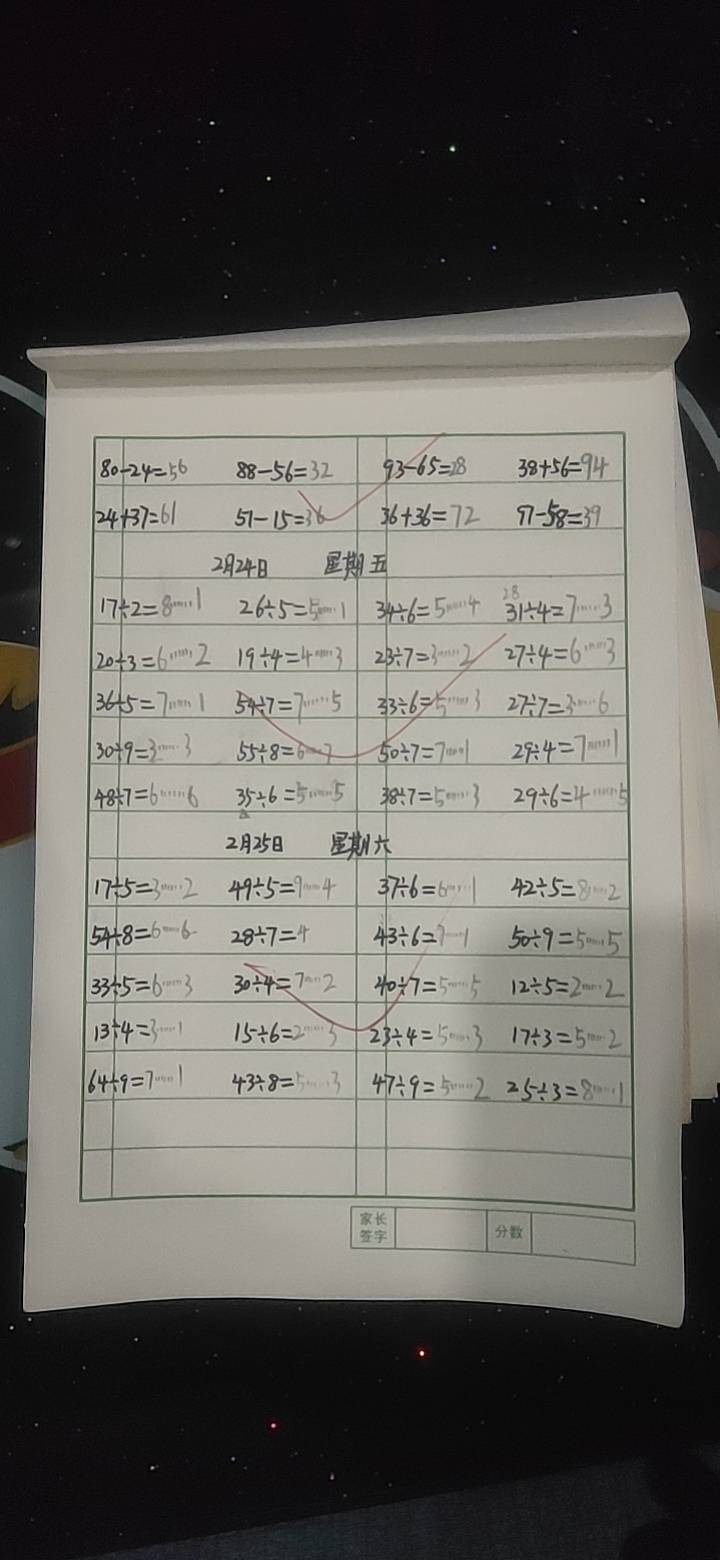 80-24=56 88-56=32 93-65=28 38+56=94
24+37=61 51-15=36 36+36=72 97-58=39
2月24日 星期五
28
17÷2=8……1 26÷5=5……1 34÷6=5……4 31÷4=7……3
20÷3=6……2 19÷4=4……3 23÷7=3……2 27÷4=6……3
36÷5=7……1 54÷7=7……5 33÷6=5……3 27÷7=3……6
30÷9=3……3 55÷8=6……7 50÷7=7……1 29÷4=7……1
48÷7=6……6 35÷6=5……5 38÷7=5……3 29÷6=4……5
2月25日 星期六
17÷5=3……2 49÷5=9……4 37÷6=6……1 42÷5=8……2
54÷8=6……6 28÷7=4 43÷6=7……1 50÷9=5……5
33÷5=6……3 30÷4=7……2 40÷7=5……5 12÷5=2……2
13÷4=3……1 15÷6=2……3 23÷4=5……3 17÷3=5……2
64÷9=7……1 43÷8=5……3 47÷9=5……2 25÷3=8……1
家长签字 分数